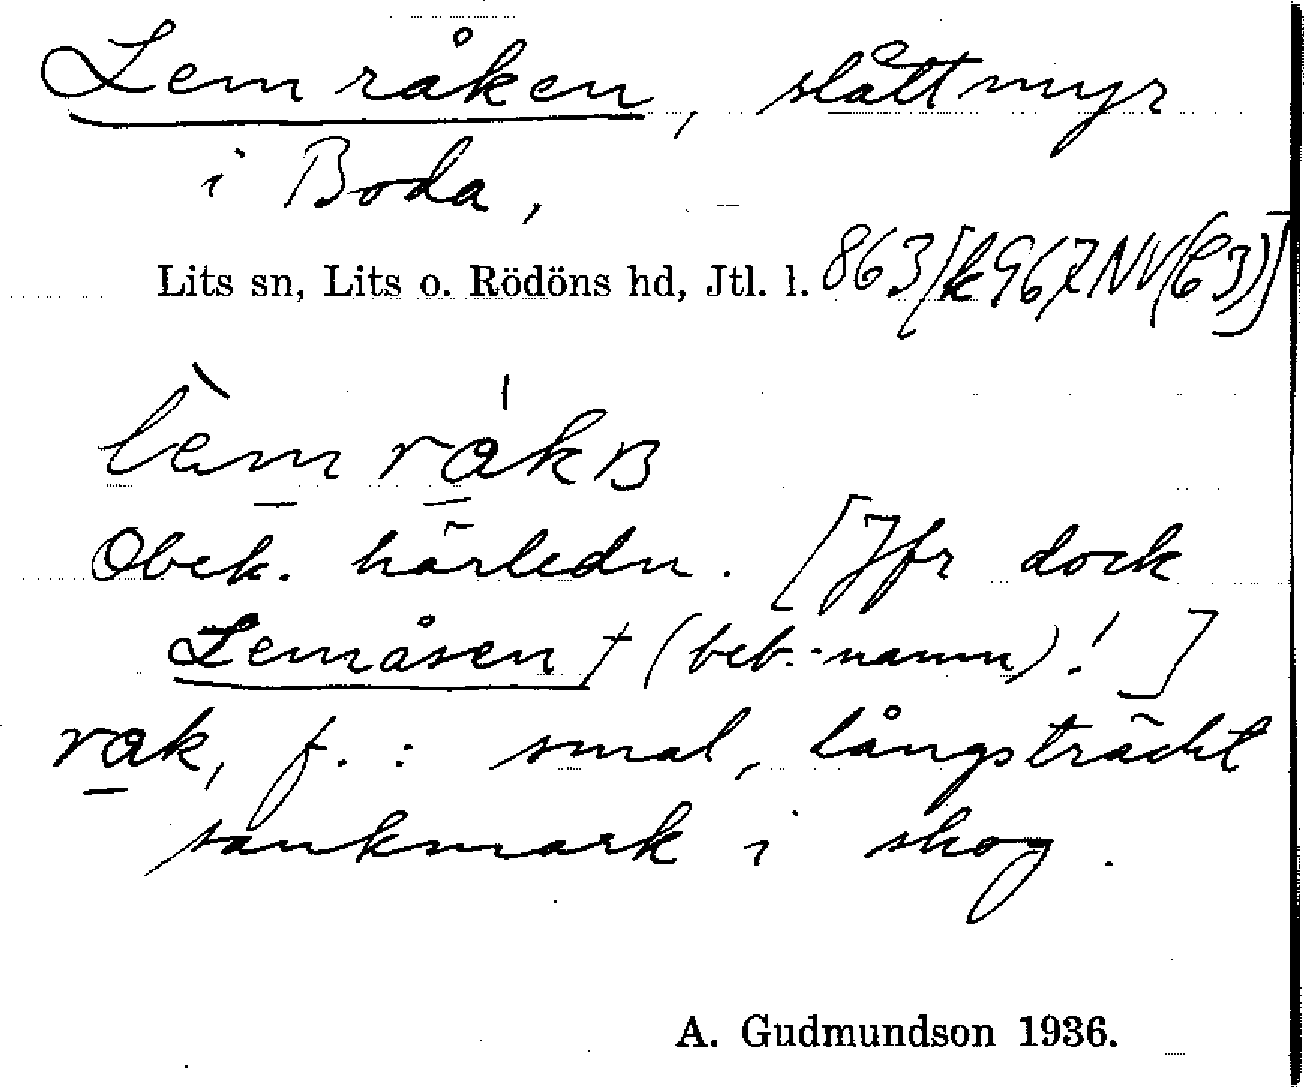 Lemråken, slåttmyr
i Boda,
Lits sn, Lits o. Rödöns hd, Jtl. l. 863/[k967NV(63)]
Obek. härledn. [Jfr dock
Lemåsen † (beb.-namn)! ]
rak, f. : smal, långsträckt
sankmark i skog.
A. Gudmundson 1936.